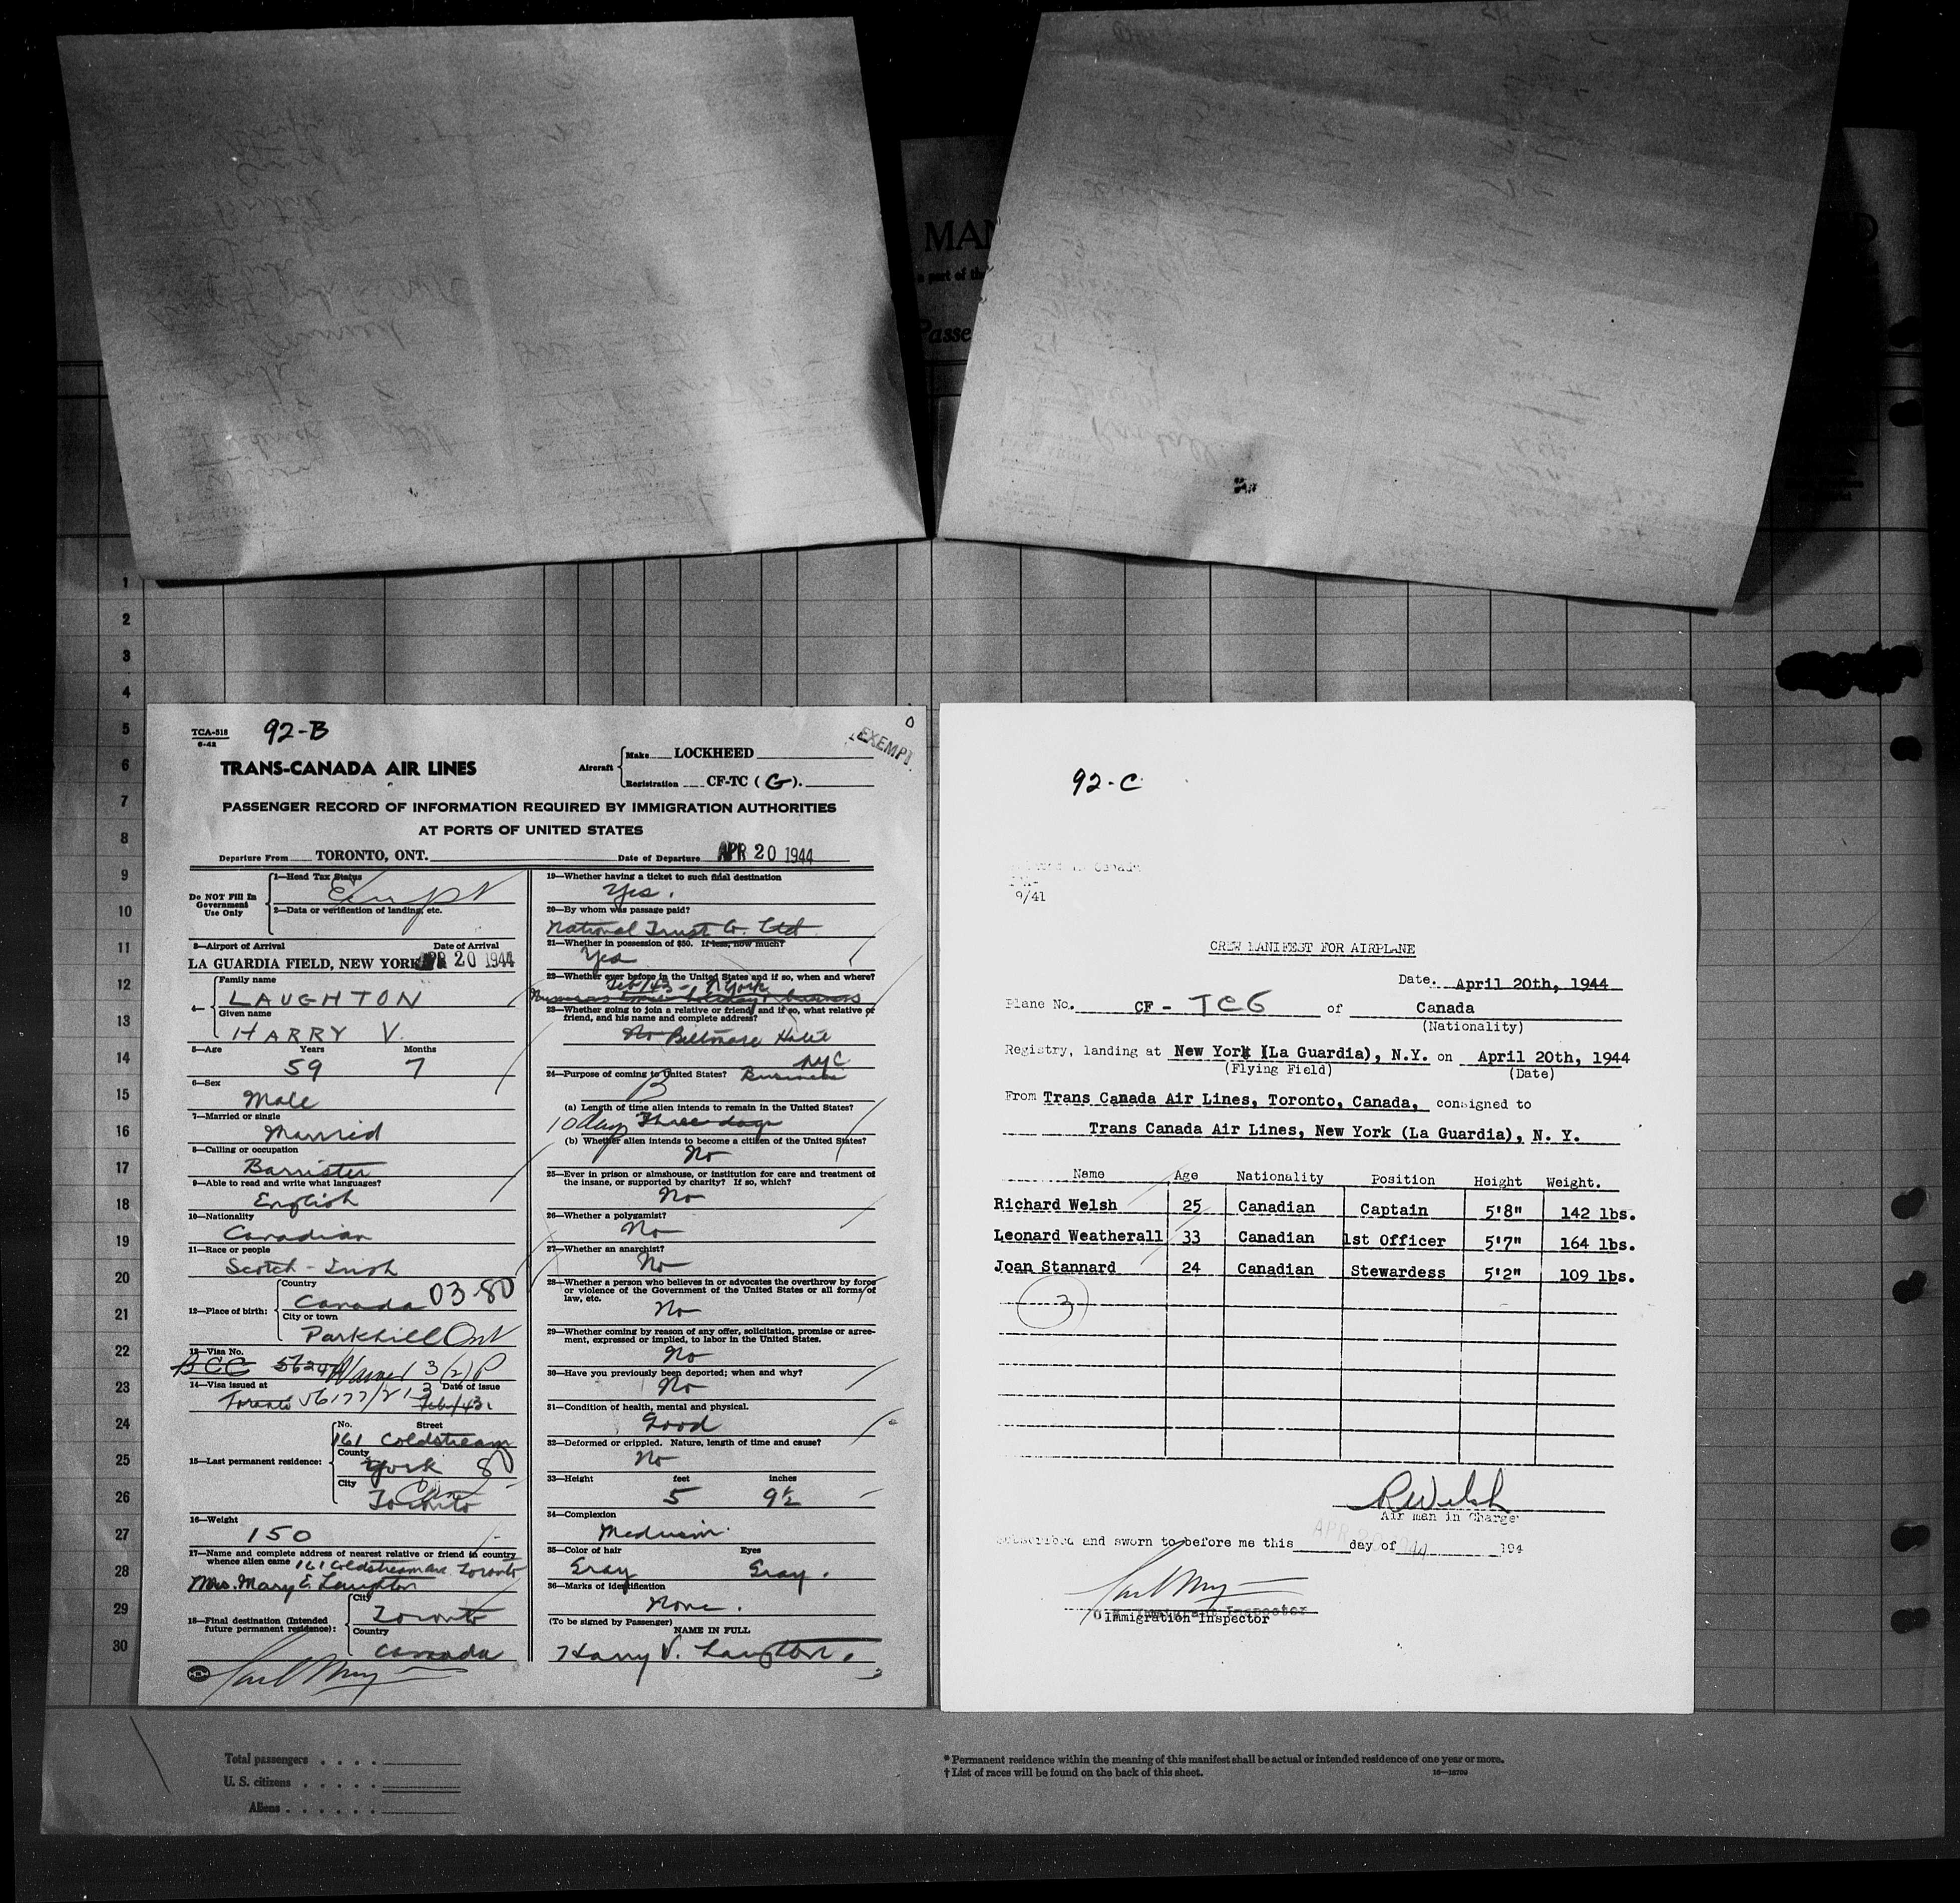 MAN
a part of the
Passe
1
2
3
4
5
6
7
8
9
10
11
12
13
14
15
16
17
18
19
20
21
22
23
24
25
26
27
28
29
30
TCA-518
6-42
92-B
EXEMPT
TRANS-CANADA AIR LINES
Aircraft
Make LOCKHEED
Registration CF-TC (G).
PASSENGER RECORD OF INFORMATION REQUIRED BY IMMIGRATION AUTHORITIES
AT PORTS OF UNITED STATES
Departure From TORONTO, ONT. Date of Departure APR 20 1944
Do NOT Fill In
Government
Use Only
1—Head Tax Status
Exempt
2—Data or verification of landing, etc.
3—Airport of Arrival Date of Arrival
LA GUARDIA FIELD, NEW YORK APR 20 1944
4—
Family name
LAUGHTON
Given name
HARRY V.
5—Age Years Months
59 7
6—Sex
Male
7—Married or single
Married
8—Calling or occupation
Barrister
9—Able to read and write what languages?
English
10—Nationality
Canadian
11—Race or people
Scotch-Irish
12—Place of birth:
Country
Canada 03-80
City or town
Parkhill Ont
13—Visa No.
BCC 56247 3(2)P
14—Visa issued at Date of issue
Toronto 56177/21-3 Feb/43
15—Last permanent residence:
No. Street
161 Coldstream
County
York 80
City
Toronto
16—Weight
150
17—Name and complete address of nearest relative or friend in country
whence alien came 161 Coldstream Ave. Toronto
Mrs. Mary E. Laughton
18—Final destination (Intended
future permanent residence):
City
Toronto
Country
Canada
19—Whether having a ticket to such final destination
Yes.
20—By whom was passage paid?
National Trust Co. Ltd
21—Whether in possession of $50. If less, how much?
Yes
22—Whether ever before in the United States and if so, when and where?
Feb/43 - N York
Numerous times holiday & business
23—Whether going to join a relative or friend, and if so, what relative or
friend, and his name and complete address?
No Biltmore Hotel
NYC
24—Purpose of coming to United States? Business
B
(a) Length of time alien intends to remain in the United States?
10 days Three days
(b) Whether alien intends to become a citizen of the United States?
No
25—Ever in prison or almshouse, or institution for care and treatment of
the insane, or supported by charity? If so, which?
No
26—Whether a polygamist?
No
27—Whether an anarchist?
No
28—Whether a person who believes in or advocates the overthrow by force
or violence of the Government of the United States or all forms of
law, etc.
No
29—Whether coming by reason of any offer, solicitation, promise or agree-
ment, expressed or implied, to labor in the United States.
No
30—Have you previously been deported; when and why?
No
31—Condition of health, mental and physical.
Good
32—Deformed or crippled. Nature, length of time and cause?
No
33—Height feet inches
5 9½
34—Complexion
Medium
35—Color of hair Eyes
Gray Gray.
36—Marks of identification
None.
(To be signed by Passenger)
NAME IN FULL
Harry V. Laughton.
92-C
9/41
CREW MANIFEST FOR AIRPLANE
Date. April 20th, 1944
Plane No. CF - TCG of Canada
(Nationality)
Registry, landing at New York (La Guardia), N.Y. on April 20th, 1944
(Flying Field) (Date)
From Trans Canada Air Lines, Toronto, Canada, consigned to
Trans Canada Air Lines, New York (La Guardia), N. Y.
Name Age Nationality Position Height Weight.
Richard Welsh 25 Canadian Captain 5'8" 142 lbs.
Leonard Weatherall 33 Canadian 1st Officer 5'7" 164 lbs.
Joan Stannard 24 Canadian Stewardess 5'2" 109 lbs.
3
RWelsh
Air man in Charge
Subscribed and sworn to before me this day of 194
APR 20 1944
Immigrant Inspector
Immigration Inspector
Total passengers . . . .
U. S. citizens . . . . .
Aliens . . . . . .
* Permanent residence within the meaning of this manifest shall be actual or intended residence of one year or more.
† List of races will be found on the back of this sheet.
16—18709